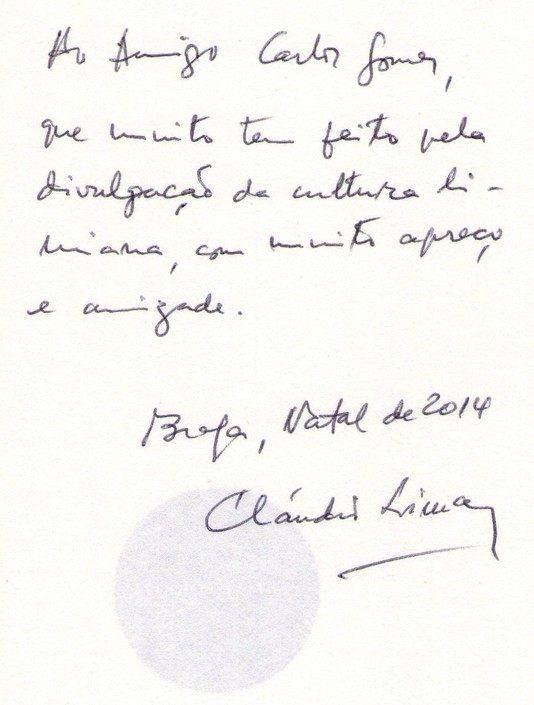 Ao Amigo Carlos Gomes,
que muito tem feito pela
divulgação da cultura li-
miana, com muito apreço
e amizade.
Braga, Natal de 2014
Cláudio Lima